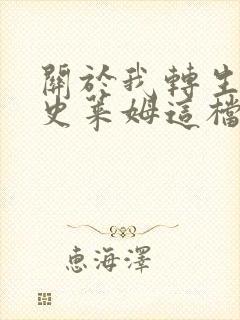 關於我轉生
史萊姆這檔
惠海澤